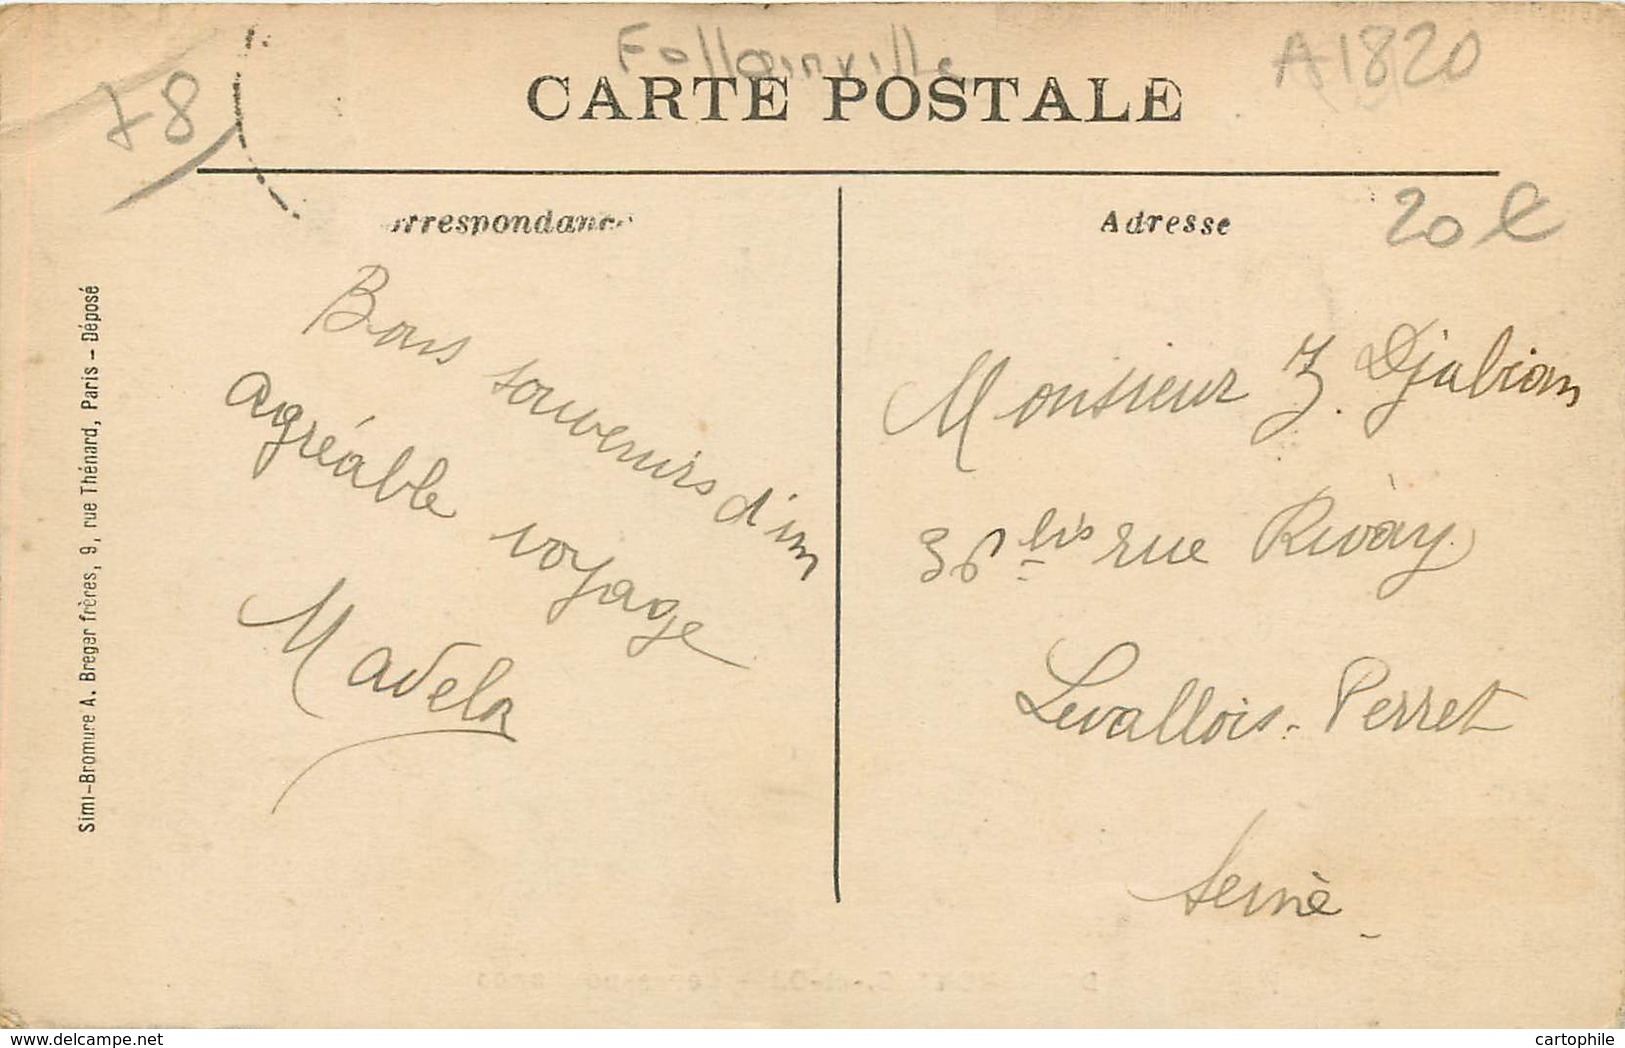 78
Follainville
A1820
CARTE POSTALE
Correspondance
Adresse
20 €
Bons souvenirs d'un
agréable voyage
Madela
Monsieur J. Djabian
36 bis rue Rivay
Levallois-Perret
Seine
Simi-Bromure A. Breger frères, 9, rue Thénard, Paris - Déposé
delcampe.net
cartophile